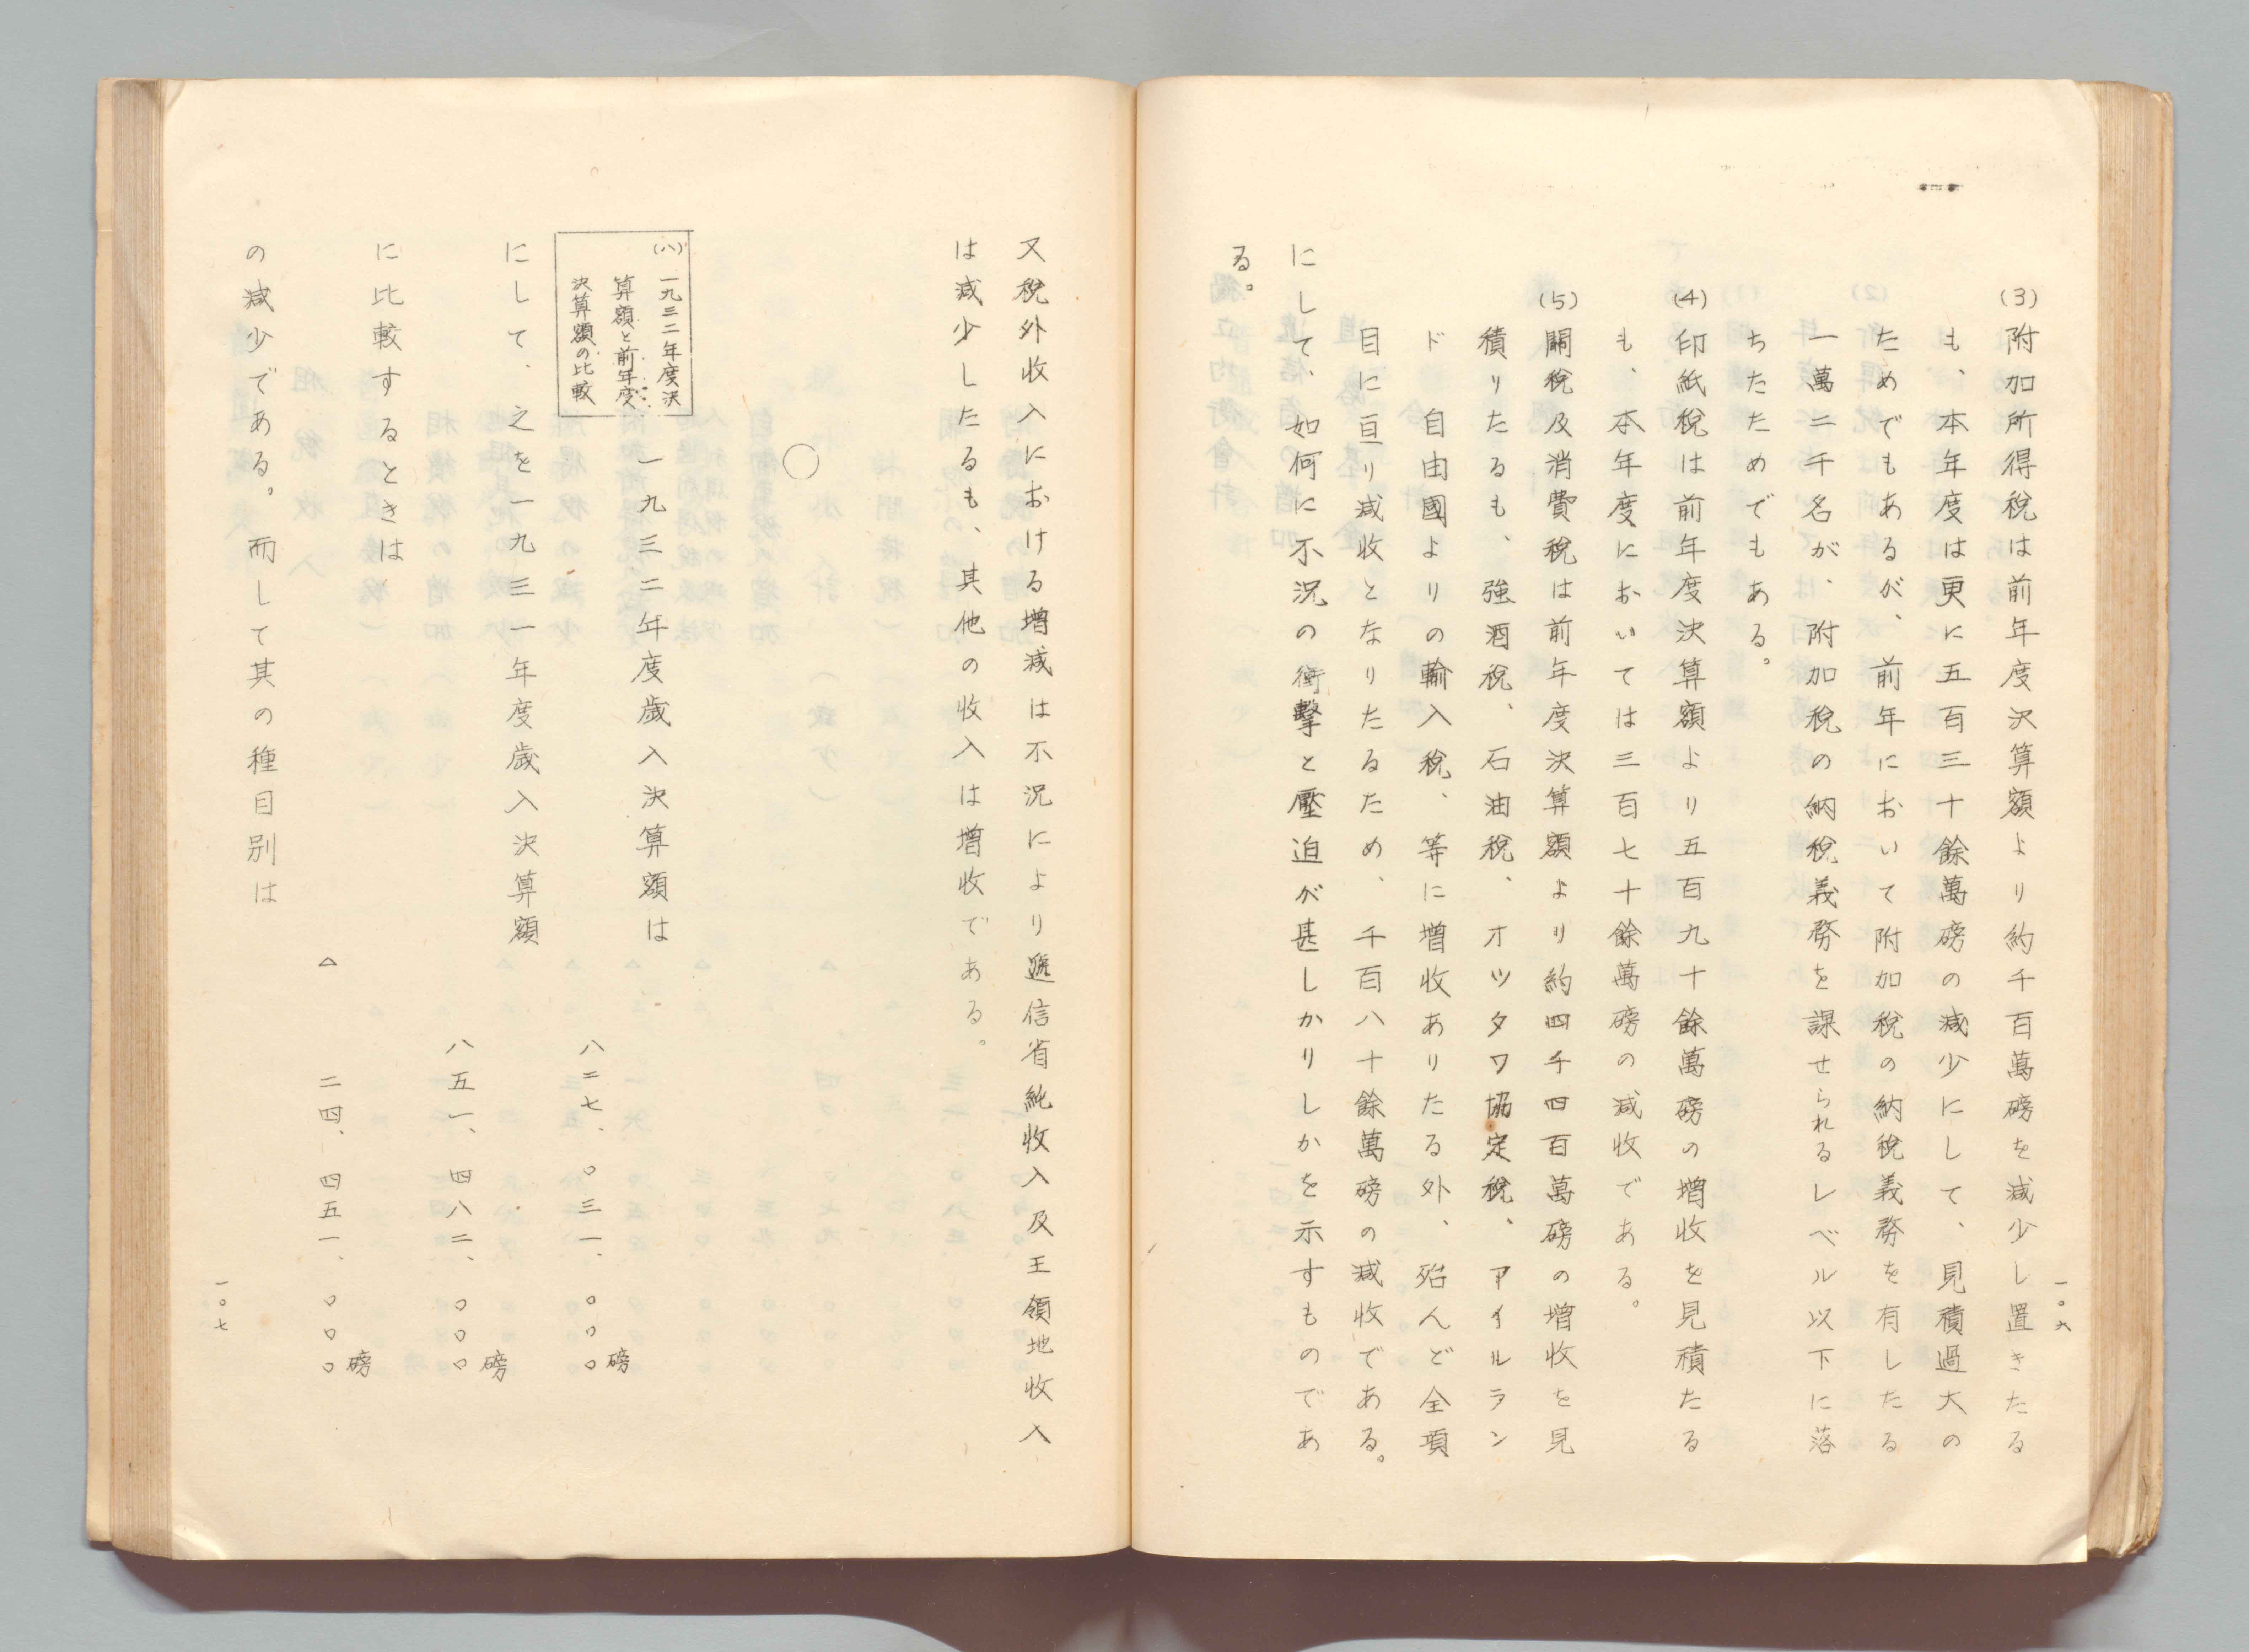 (3)附加所得稅は前年度決算額より約千百萬磅を減少し置きたる
も、本年度は更に五百三十餘萬磅の減少にして、見積過大の
ためでもあるが、前年において附加稅の納稅義務を有したる
一萬二千名が、附加稅の納稅義務を課せられるレベル以下に落
ちたためでもある。
(4)印紙稅は前年度決算額より五百九十餘萬磅の增收を見積たる
も、本年度においては三百七十餘萬磅の減收である。
(5)關稅及消費稅は前年度決算額より約四千四百萬磅の增收を見
積りたるも、強酒稅、石油稅、オツタワ協定稅、アイルラン
ド自由國よりの輸入稅、等に增收ありたる外、殆んど全項
目に亘り減收となりたるため、千百八十餘萬磅の減收である。
にして、如何に不況の衝擊と壓迫が甚しかりしかを示すものであ
る。
一〇六
又稅外收入における增減は不況により遞信省純收入及王領地收入
は減少したるも、其他の收入は增收である。
○
(八)一九三二年度決
算額と前年度
決算額の比較
一九三二年度歲入決算額は
八二七、〇三一、〇〇〇磅
にして、之を一九三一年度歲入決算額
八五一、四八二、〇〇〇磅
に比較するときは
△二四、四五一、〇〇〇磅
の減少である。而して其の種目別は
一〇七